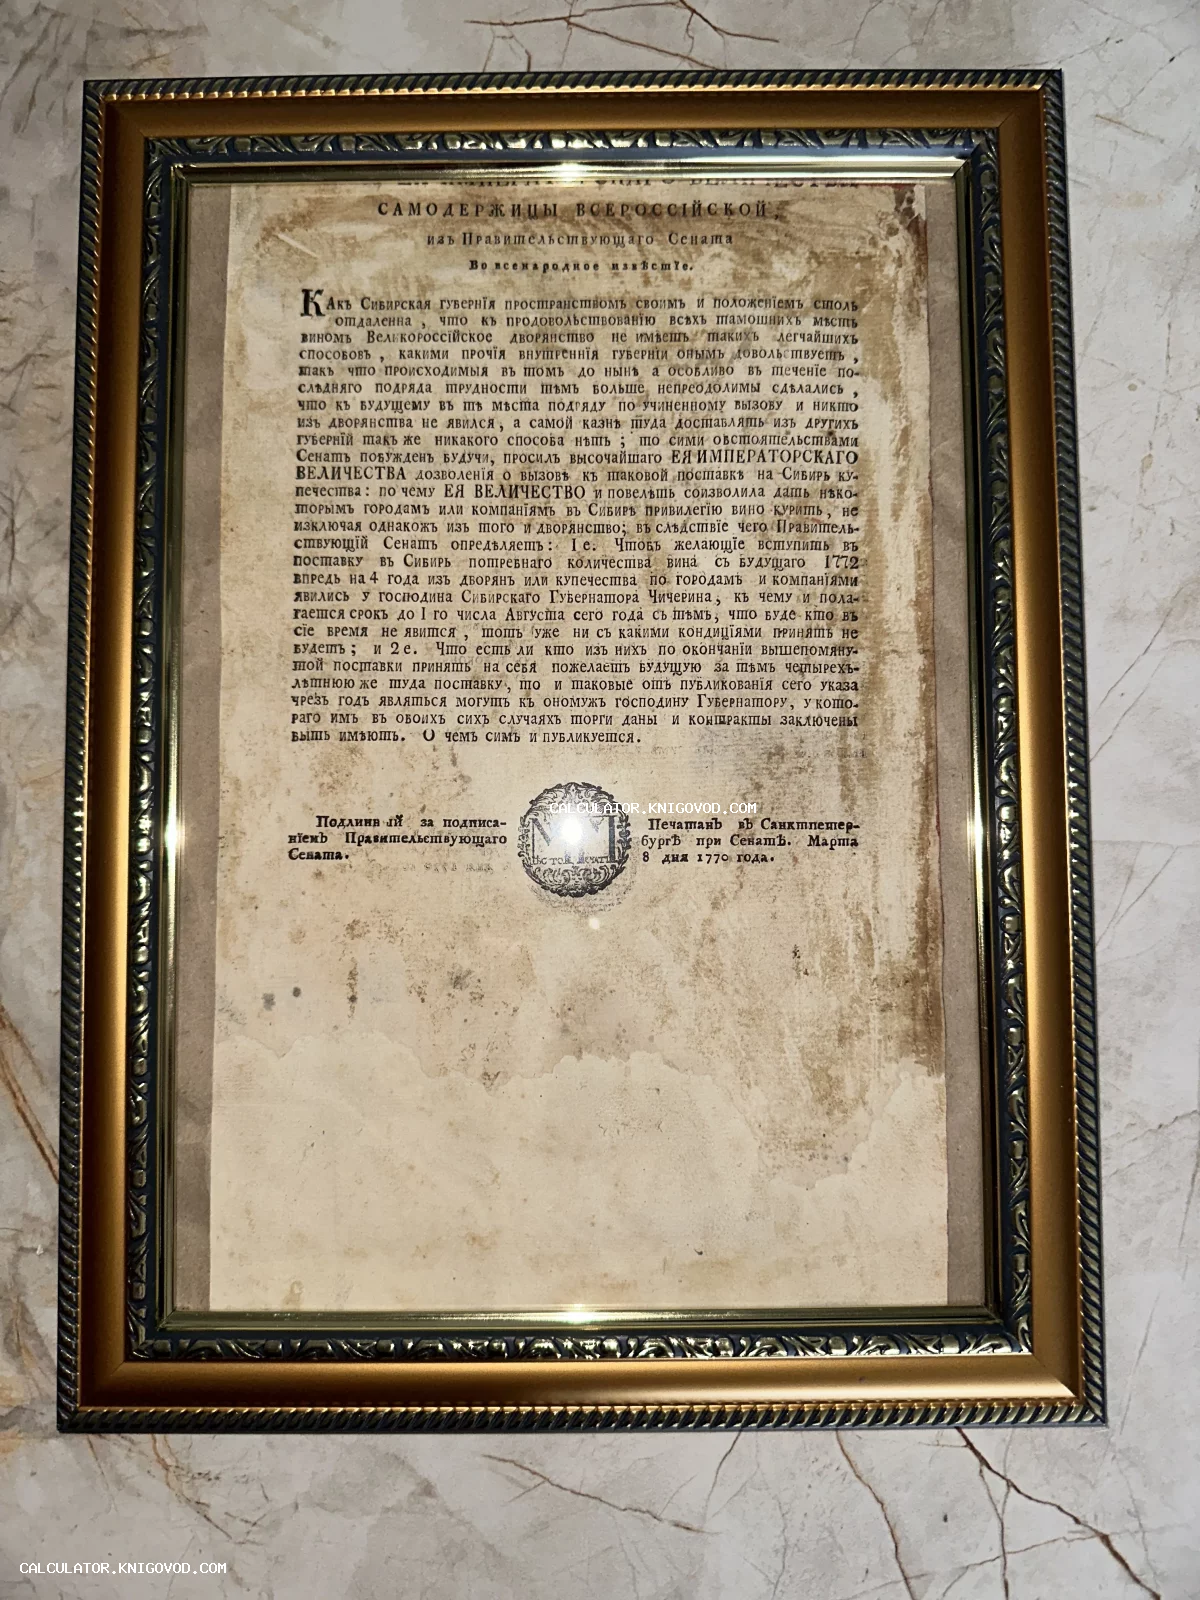 САМОДЕРЖИЦЫ ВСЕРОССІЙСКОЙ,
изъ Правительствующаго Сената
Во всенародное извѣстїе.
КАкъ Сибирская губернїя пространствомъ своимъ и положенїемъ столь
отдаленна , что къ продовольствованїю всѣхъ тамошнихъ мѣстъ
виномъ Великороссїйское дворянство не имѣетъ такихъ легчайшихъ
способовъ , какими прочїя внутреннїя губернїи онымъ довольствуетъ ,
такъ что происходимыя въ томъ до нынѣ а особливо въ теченїе по-
слѣдняго подряда трудности тѣмъ больше непреодолимы сдѣлались ,
что къ будущему въ тѣ мѣста подряду по учиненному вызову и никто
изъ дворянства не явился , а самой казнѣ туда доставлять изъ другихъ
губернїй такъ же никакого способа нѣтъ ; то сими обстоятельствами
Сенатъ побужденъ будучи, просилъ высочайшаго ЕЯ ИМПЕРАТОРСКАГО
ВЕЛИЧЕСТВА дозволенїя о вызовѣ къ таковой поставкѣ на Сибирь ку-
печества: по чему ЕЯ ВЕЛИЧЕСТВО и повелѣть соизволила дать нѣко-
торымъ городамъ или компанїямъ въ Сибирѣ привилегїю вино курить, не
изключая однакожъ изъ того и дворянство; въ слѣдствїе чего Правитель-
ствующїй Сенатъ опредѣляетъ: 1 е. Чтобъ желающїе вступить въ
поставку въ Сибирь потребнаго количества вина съ будущаго 1772
впредь на 4 года изъ дворянъ или купечества по городамъ и компанїями
явились у господина Сибирскаго Губернатора Чичерина, къ чему и пола-
гается срокъ до 1 го числа Августа сего года съ тѣмъ, что буде кто въ
сїе время не явится , тотъ уже ни съ какими кондицїями принятъ не
будетъ ; и 2 е. Что есть ли кто изъ нихъ по окончанїи вышепомяну-
той поставки принять на себя пожелаетъ будущую за тѣмъ четырехъ-
лѣтнюю же туда поставку, то и таковые отъ публикованїя сего указа
чрезъ годъ являться могутъ къ оному жъ господину Губернатору, у кото-
раго имъ въ обоихъ сихъ случаяхъ торги даны и контракты заключены
быть имѣютъ. О чемъ симъ и публикуется.
Подлинный за подписа-
нїемъ Правительствующаго
Сената.
Печатанъ въ Санктпетер-
бургѣ при Сенатѣ. Марта
8 дня 1770 года.
CALCULATOR.KNIGOVOD.COM
CALCULATOR.KNIGOVOD.COM